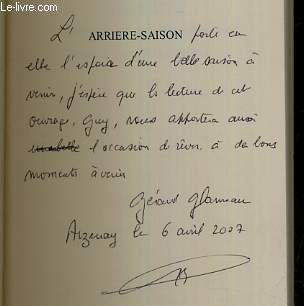 Le-livre.com
L' ARRIERE-SAISON porte en
elle l'espoir d'une belle saison à
venir, j'espère que la lecture de cet
ouvrage, Guy, vous apportera aussi
l'occasion de rêver à de bons
moments à venir
Gérard
Arzenay le 6 avril 2007